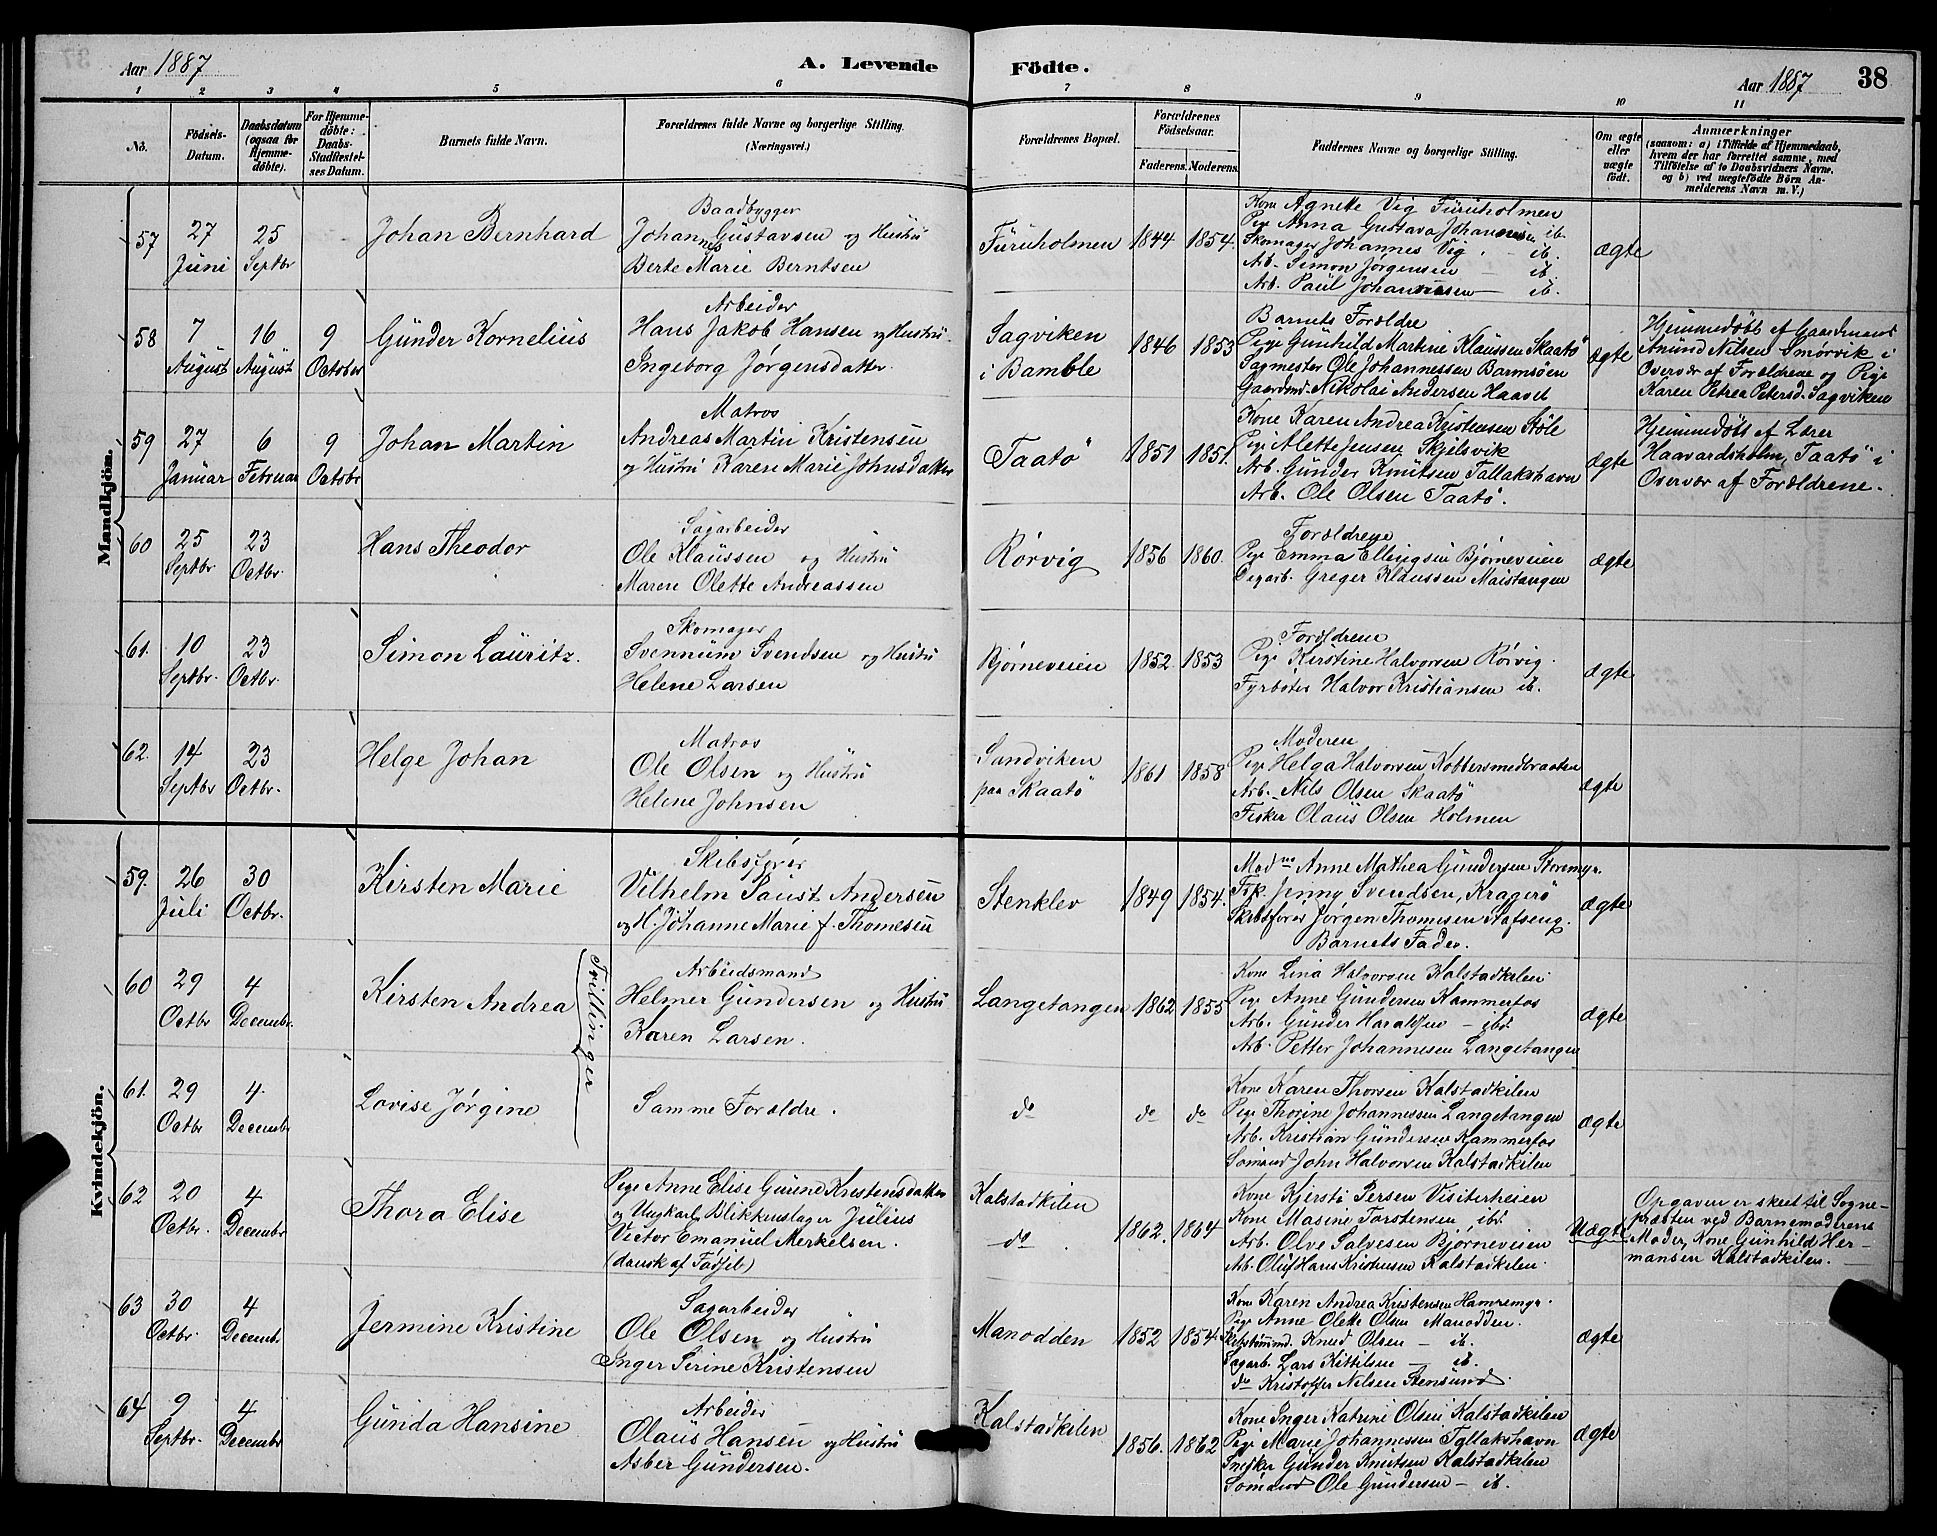 Aar 1887
A. Levende Födte.
Aar 1887
38
1 2 3 4 5 6 7 8 9 10 11
No.
Födsels-Datum.
Daabsdatum (ogsaa for Hjemme-döbte).
For Hjemme-döbte: Daabs-Stadfæstel-ses Datum.
Barnets fulde Navn.
Forældrenes fulde Navne og borgerlige Stilling.
(Næringsvei.)
Forældrenes Bopæl.
Forældrenes Födselsaar.
Faderens. Moderens.
Faddernes Navne og borgerlige Stilling.
Om ægte eller uægte født.
Anmærkninger
(saasom: a) i Tilfælde af Hjemmedaab,
hvem der har forrettet samme, med
Tilföielse af to Daabsvidners Navne,
og b) ved uægtefödte Börn An-
melderens Navn m. V.)
Mandkjön.
57
27 Juni
25 Septbr
Johan Bernhard
Baadbygger
Johannes Gustavsen og Hustru
Berte Marie Berntsen
Furuholmen
1844 1854.
Kone Agnete Vig Furuholmen
Pige Anna Gustava Johannesen ib.
Skomager Johannes Vig - ib.
Arb. Simon Jørgensen - ib.
Arb. Paul Johannesen - ib.
ægte
58
7 August
16 August
9 October
Gunder Kornelius
Arbeider
Hans Jakob Hansen og Hustru
Ingeborg Jørgensdatter.
Sagviken
i Bamble
1846 1853
Barnets Forældre
Pige Gunhild Martine Klaussen Skaatö
Sagmester Ole Johannessen Barmsöen
Gaardmd. Nikolai Andersen Haaset
ægte
Hjemmedöbt af Gaardmand
Amund Nilsen Smørvik i
Overvær af Forældrene og Pige
Karen Petrea Petersd. Sagviken
59
27 Januar
6 Februar
9 Octobr
Johan Martin
Matros
Andreas Martin Kristensen
og Hustru Karen Marie Johnsdatter
Taatö
1851 1851.
Kone Karen Andrea Kristensen Støle
Pige Alette Jensen Skjelsvik
Arb. Gunder Knutsen Tallakshavn
Arb. Ole Olsen Taatö.
ægte
Hjemmedöbt af Lærer
Haavardsholm, Taatö i
Overvær af Forældrene.
60
25 Septbr
23 Octbr.
Hans Theodor
Sagarbeider
Ole Klaussen og Hustru
Maren Olette Andreassen
Rörvig
1856 1860.
Forældrene
Pige Emma Ellingsen Bjørneveien
Greger Klaussen Maistangen
ægte
61.
10 Septbr.
23 Octbr.
Simon Lauritz.
Skomager
Svennum Svendsen og Hustru
Helene Larsen
Bjørneveien
1852 1853
Forældrene
Pige Kirstine Halvorsen Rörvig.
Fyrböter Halvor Kristiansen ib.
ægte
62.
14 Septbr
23 Octbr.
Helge Johan
Matros
Ole Olsen og Hustru
Helene Johnsen
Sandviken
paa Skaatö
1861 1858
Moderen
Pige Helga Halvorsen Kobbersmedbraaten
Arb. Nils Olsen Skaatö
Fisker Olaus Olsen Holmen
ægte
Kvindekjön.
59.
26 Juli
30 Octbr.
Kirsten Marie
Skibsfører
Vilhelm Faust Andersen
og H. Johanne Marie f. Thomesen
Stenklev
1849 1854.
Madme Anne Mathea Gundersen Storemyr.
Frk. Jenny Svendsen, Kragerö
Skibsfører Jørgen Thomesen
Barnets Fader.
ægte
60
29 Octbr
4 Decembr.
Kirsten Andrea
Tvillinger
Arbeidsmand
Helmer Gundersen og Hustru
Karen Larsen.
Langetangen
1862 1855
Kone Lina Halvorsen Kalstadkilen
Pige Anne Gundersen Kammerfos
Arb. Gunder Haraldsen - ibd.
Arb. Petter Johannesen Langetangen
ægte
61.
29 Octbr
4. Decembr
Lovise Jörgine
Samme Forældre.
do
do do
Kone Karen Thorsen Kalstadkilen
Pige Thorine Johannesen Langetangen
Arb. Kristian Gundersen Kammerfos
Sömand John Halvorsen Kalstadkilen
ægte
62
20 Octbr.
4 Decembr
Thora Elise
Pige Anne Elise Gurine Kristensdatter
og Ungkarl Blikkenslager Julius
Victor Emanuel Merkelsen.
(dansk af Fødsel)
Kalstadkilen
do
1862. 1864
Kone Kjersti Persen Visiterheien
Kone Masine Torstensen, ibd.
Arb. Olve Salvesen Bjørneveien
Arb. Oluf Hans Kristensen Kalstadkilen.
Uægte
Opgaven er skeet til Sogne-
præsten ved Barnemoderens
Moder, Kone Gunhild Her-
mansen Kalstadkilen.
63
30 Octbr.
4 Decembr.
Jermine Kristine
Sagarbeider
Ole Olsen og Hustru
Inger Serine Kristensen
Manodden
1852 1854.
Kone Karen Andrea Kristensen Hamremyr.
Pige Anne Olette Olsen Manodden.
Skibstömmd. Knud Olsen - ib.
Sagarb. Lars Kittilsen - ib.
do Kristoffer Nilsen Stensund.
ægte
64
9 Septbr.
4 Decembr
Gunda Hansine
Arbeider
Olaus Hansen og Hustru
Asber Gundersen.
Kalstadkilen
1856. 1862
Kone Inger Katrine Olsen Kalstadkilen
Pige Marie Johannessen Tallakshavn
Snedker Gunder Knutsen Kalstadkilen
Sömand Ole Gundersen - ib.
ægte